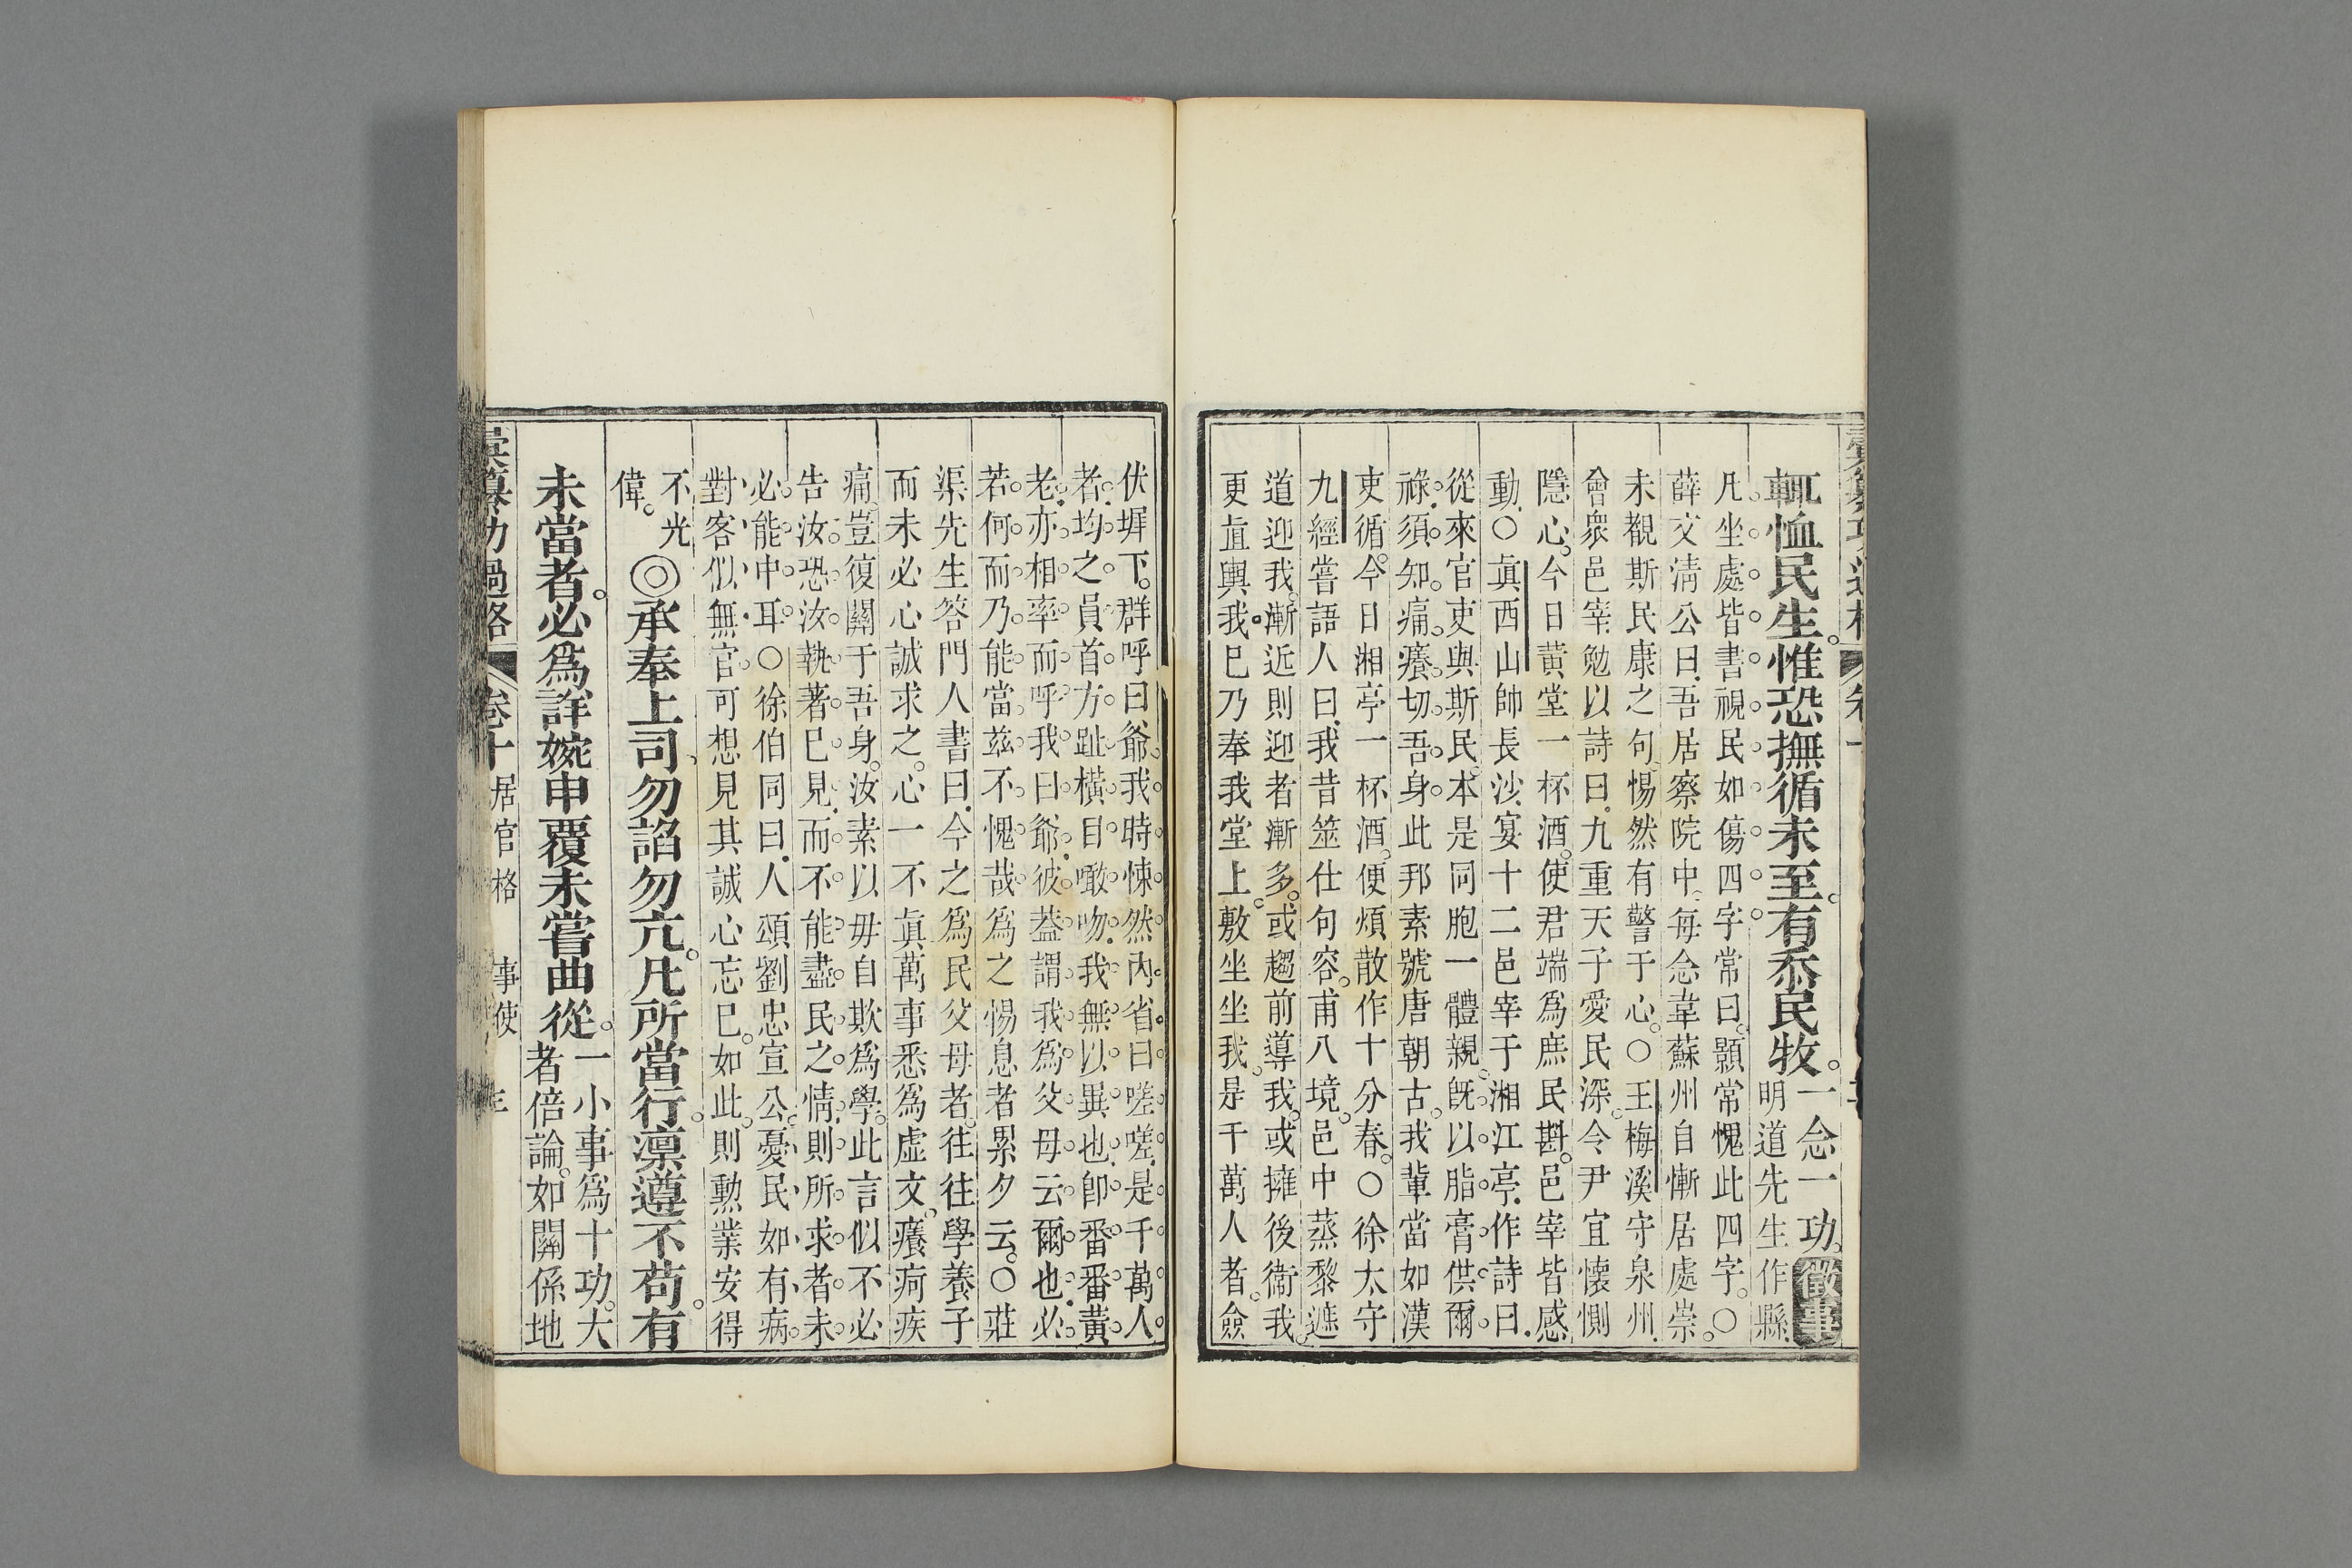 輒恤民生。惟恐撫循未至。有忝民牧。一念一功。徵事
明道先生作縣。
凡坐處皆書視民如傷四字。常曰。顥常愧此四字。○
薛文淸公曰。吾居察院中。每念韋蘇州自慚居處崇。
未觀斯民康之句。惕然有警于心。○王梅溪守泉州。
會衆邑宰。勉以詩曰。九重天子愛民深。令尹宜懷惻
隱心。今日黃堂一杯酒。使君端爲庶民斟。邑宰皆感
動。○眞西山帥長沙。宴十二邑宰于湘江亭。作詩曰。
從來官吏與斯民。本是同胞一體親。旣以脂膏供爾
祿。須知痛癢切吾身。此邦素號唐朝古。我輩當如漢
吏循。今日湘亭一杯酒。便煩散作十分春。○徐太守
九經嘗語人曰。我昔筮仕句容。甫八境。邑中蒸黎遮
道迎我。漸近則迎者漸多。或趨前導我。或擁後衞我。
更直輿我。已乃奉我堂上。敷坐坐我。是千萬人者。僉
伏墀下。群呼曰爺。我時悚然內省曰。嗟嗟。是千萬人
者。均之員首方趾。橫目噉吻。我無以異也。卽番番黃
老。亦相率而呼我曰爺。彼蓋謂我爲父母云爾也。必
若何而乃能當茲不愧哉。爲之惕息者累夕云。○莊
渠先生答門人書曰。今之爲民父母者。往往學養子
而未必心誠求之。心一不眞。萬事悉爲虛文。癢疴疾
痛。豈復關于吾身。汝素以毋自欺爲學。此言似不必
告汝。恐汝執著已見。而不能盡民之情。則所求者未
必能中耳。○徐伯同曰。人頌劉忠宣公。憂民如有病。
對客似無官。可想見其誠心忘已。如此。則勲業安得
不光
偉。
◎承奉上司。勿諂勿亢。凡所當行。凛遵不苟。有
未當者。必爲詳婉申覆。未嘗曲從。一小事爲十功。大
者倍論。如關係地
彙纂功過格 卷十 居官格 事使